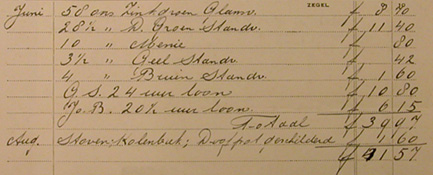 ZEGEL
Juni 58 ons Zinkgroen Glans. f 8 80
28½ " D. Groen Standv. f 11 40
10 " Menie 80
3½ " Geel Standv. f 42
4 " Bruin Standv. f 1 60
G. S. 24 uur loon f 10 80
Jo. B. 20½ uur loon. f 6 15
Totaal f 39 97
Aug. Stoven; Kolenbak; geschilderd 1 60
f 41 57